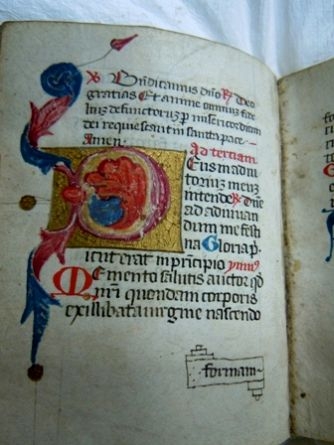 Bn̄dicamus dn̄o R̄ Deo
gratias Et anime omniuz fide
liuz defunctoruz p misericordiam
dei requiescant in sancta pace
Amen
Ad terciam
Deus in adiu
toriuz meuz
intende R̄ Dn̄e
ad adiuuan
dum me festi
na Gloria p̄.
icut erat in principio ymnus
Memento salutis auctor qd̄
nr̄i quondam corporis
ex illibata uirgine nascendo
formam